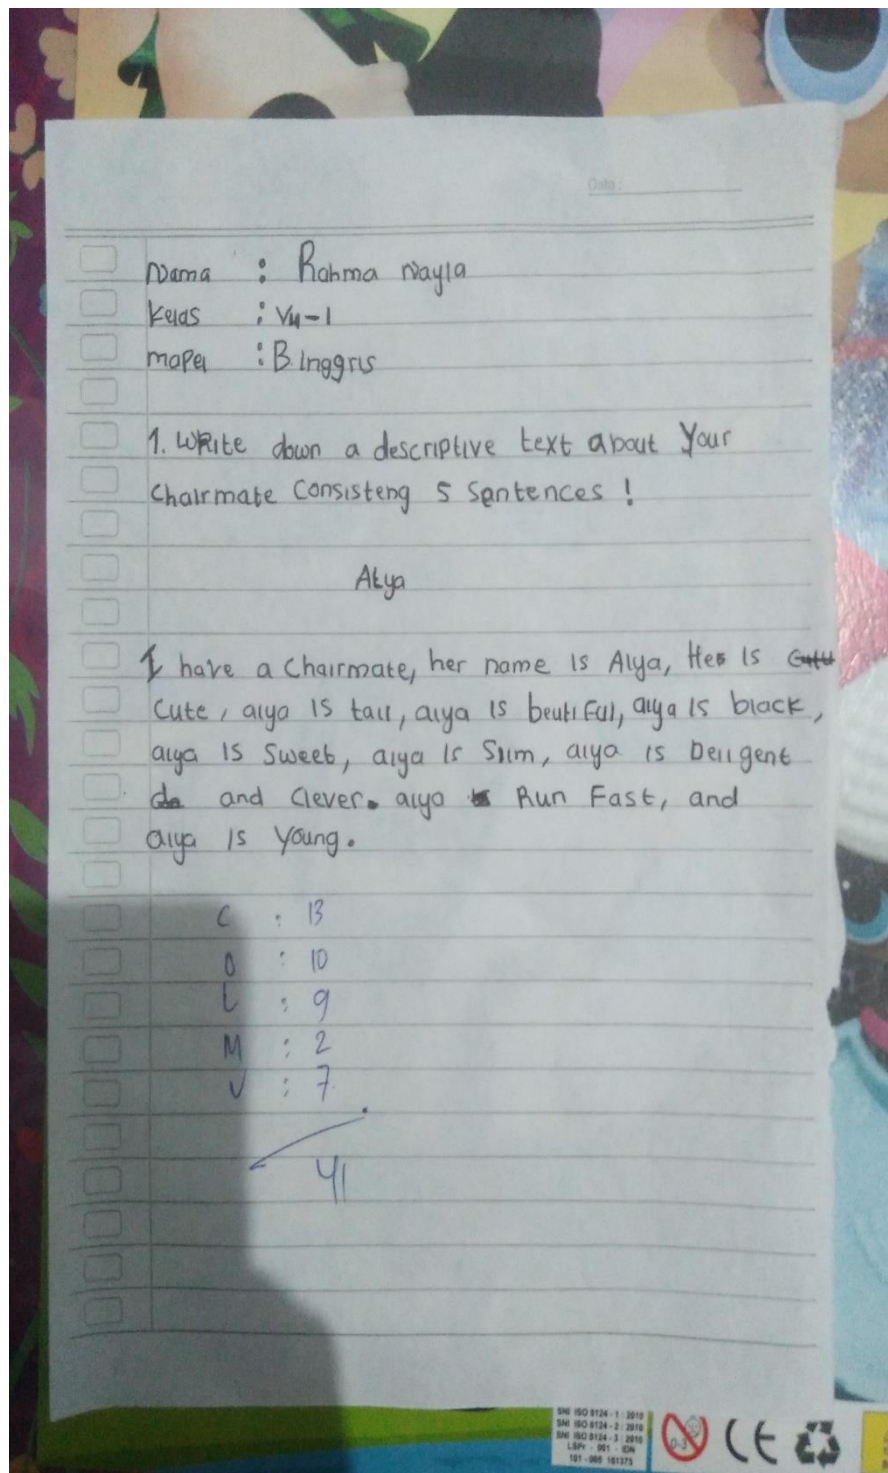 Date :
Nama : Rahma Nayla
Kelas : VII-1
mapel : B. Inggris
1. Write down a descriptive text about Your
Chairmate Consisteng 5 Sentences !
Alya
I have a Chairmate, her name is Alya, Her is
Cute, alya is tall, alya is beutiful, alya is black,
alya is Sweet, alya is Slim, alya is Deligent
and Clever. alya Run Fast, and
alya is Young.
C : 13
O : 10
L : 9
M : 2
V : 7
41
SNI ISO 8124 - 1 : 2010
SNI ISO 8124 - 2 : 2010
SNI ISO 8124 - 3 : 2010
LSPr - 001 - IDN
0-3
CE